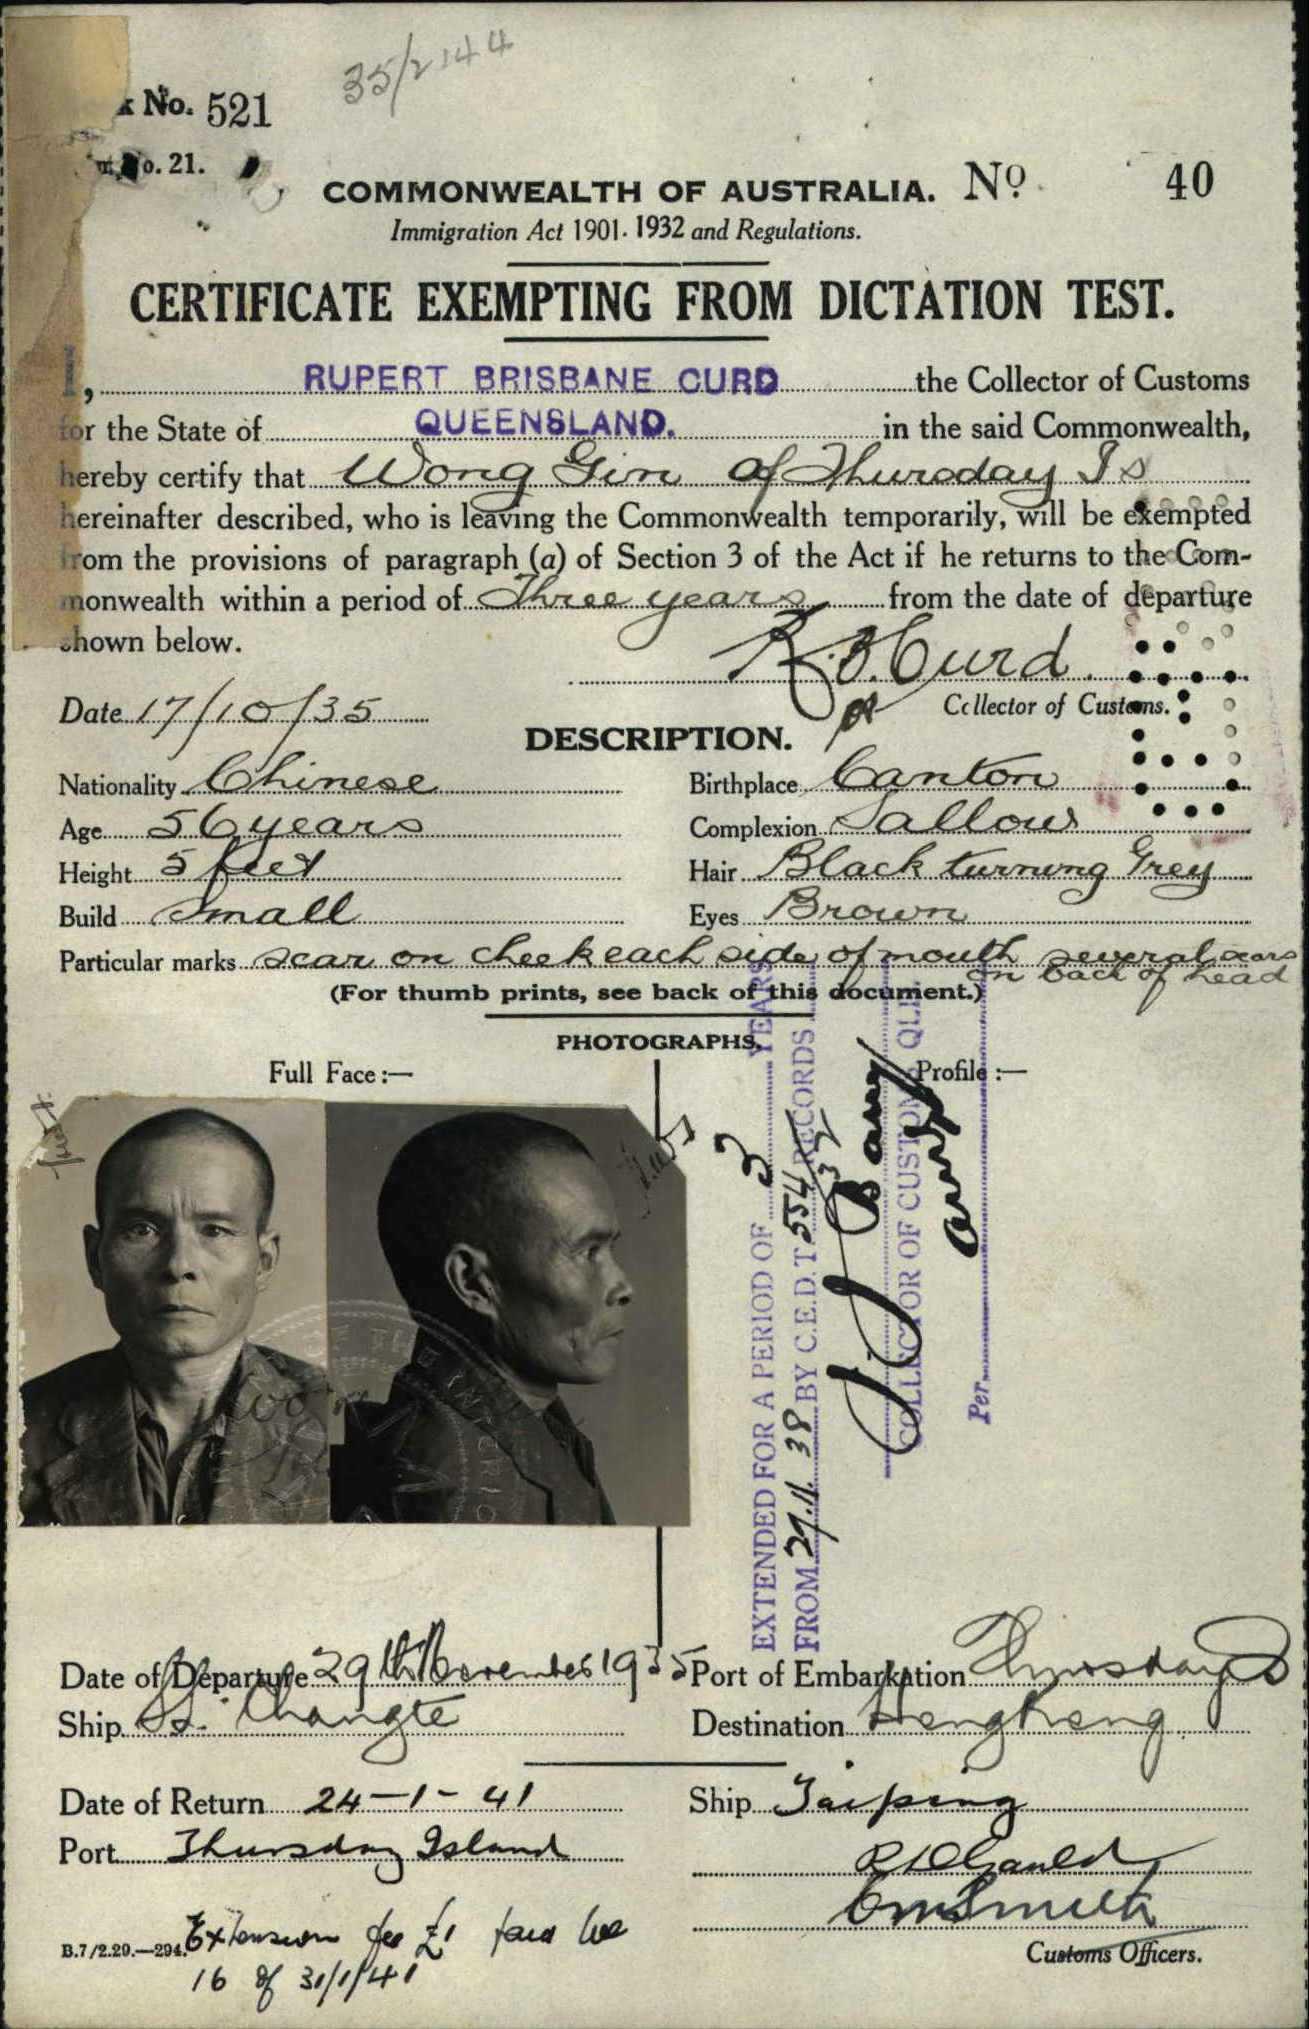 35/2144
k No. 521
o. 21.
COMMONWEALTH OF AUSTRALIA. No. 40
Immigration Act 1901-1932 and Regulations.
CERTIFICATE EXEMPTING FROM DICTATION TEST.
I, RUPERT BRISBANE CURD the Collector of Customs
for the State of QUEENSLAND. in the said Commonwealth,
hereby certify that Wong Gin of Thursday Is
hereinafter described, who is leaving the Commonwealth temporarily, will be exempted
from the provisions of paragraph (a) of Section 3 of the Act if he returns to the Com-
monwealth within a period of Three years from the date of departure
shown below.
R.B. Curd
Date 17/10/35 Collector of Customs.
DESCRIPTION.
Nationality Chinese Birthplace Canton
Age 56 years Complexion Sallow
Height 5 feet Hair Black turning Grey
Build Small Eyes Brown
Particular marks scar on cheek each side of mouth several scars
on back of head
(For thumb prints, see back of this document.)
PHOTOGRAPHS.
Full Face:— Profile:—
EXTENDED FOR A PERIOD OF 3 YEARS
FROM 29.11.38 BY C.E.D.T. 554/32 RECORDS
COLLECTOR OF CUSTOMS QLD
Per
Date of Departure 29th November 1935 Port of Embarkation Thursday Is
Ship SS. Changte Destination Hong Kong
Date of Return 24-1-41 Ship Taiping
Port Thursday Island
Customs Officers.
B.7/2.29.—294. Extension fee £1 paid
16 of 31/1/41